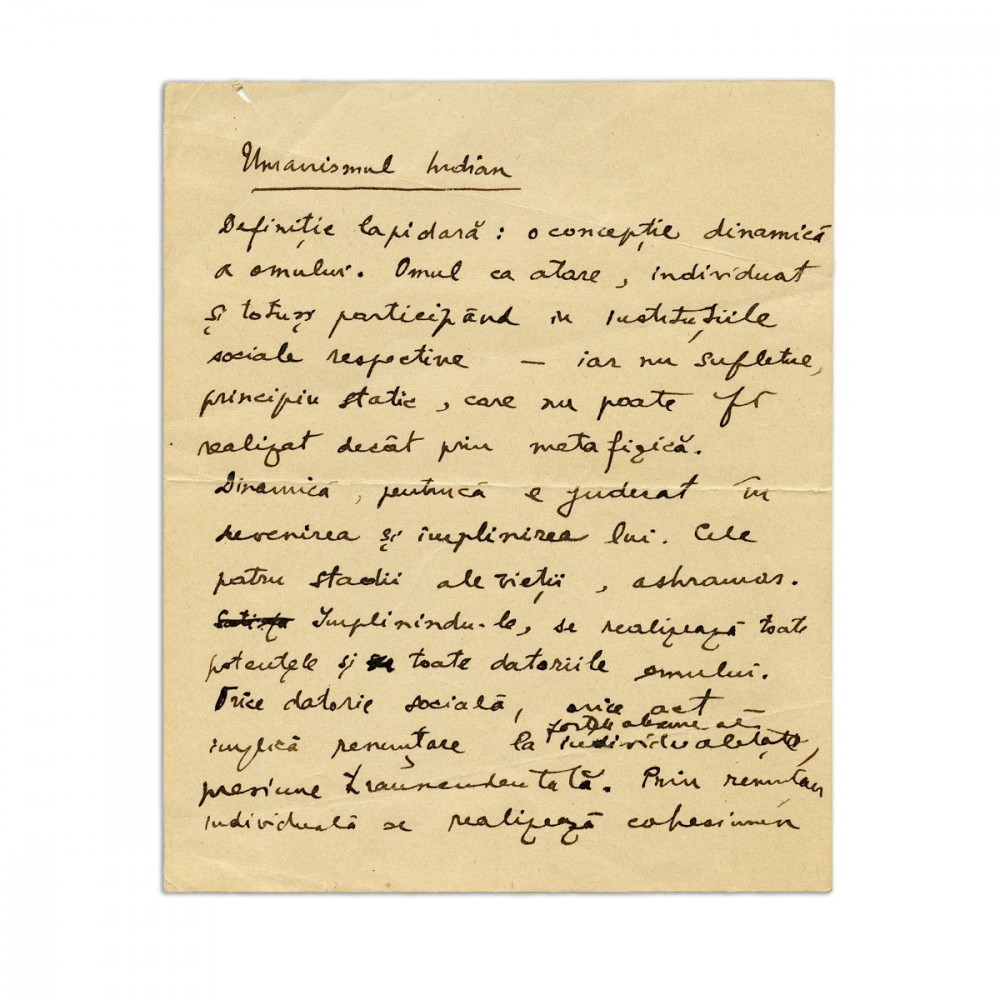 Umanismul Indian
Definiție lapidară: o concepție dinamică
a omului. Omul ca atare, individuat
și totuși participând in instituțiile
sociale respective — iar nu sufletul,
principiu static, care nu poate fi
realizat decât prin metafizică.
Dinamică, pentrucă e judecat în
devenirea și implinirea lui. Cele
patru stadii ale vieții, ashramas.
Implinindu-le, se realizează toate
potențele și toate datoriile omului.
Orice datorie socială, orice act
implică renunțare la individualitate,
presiune
individuală se realizează coheziunea